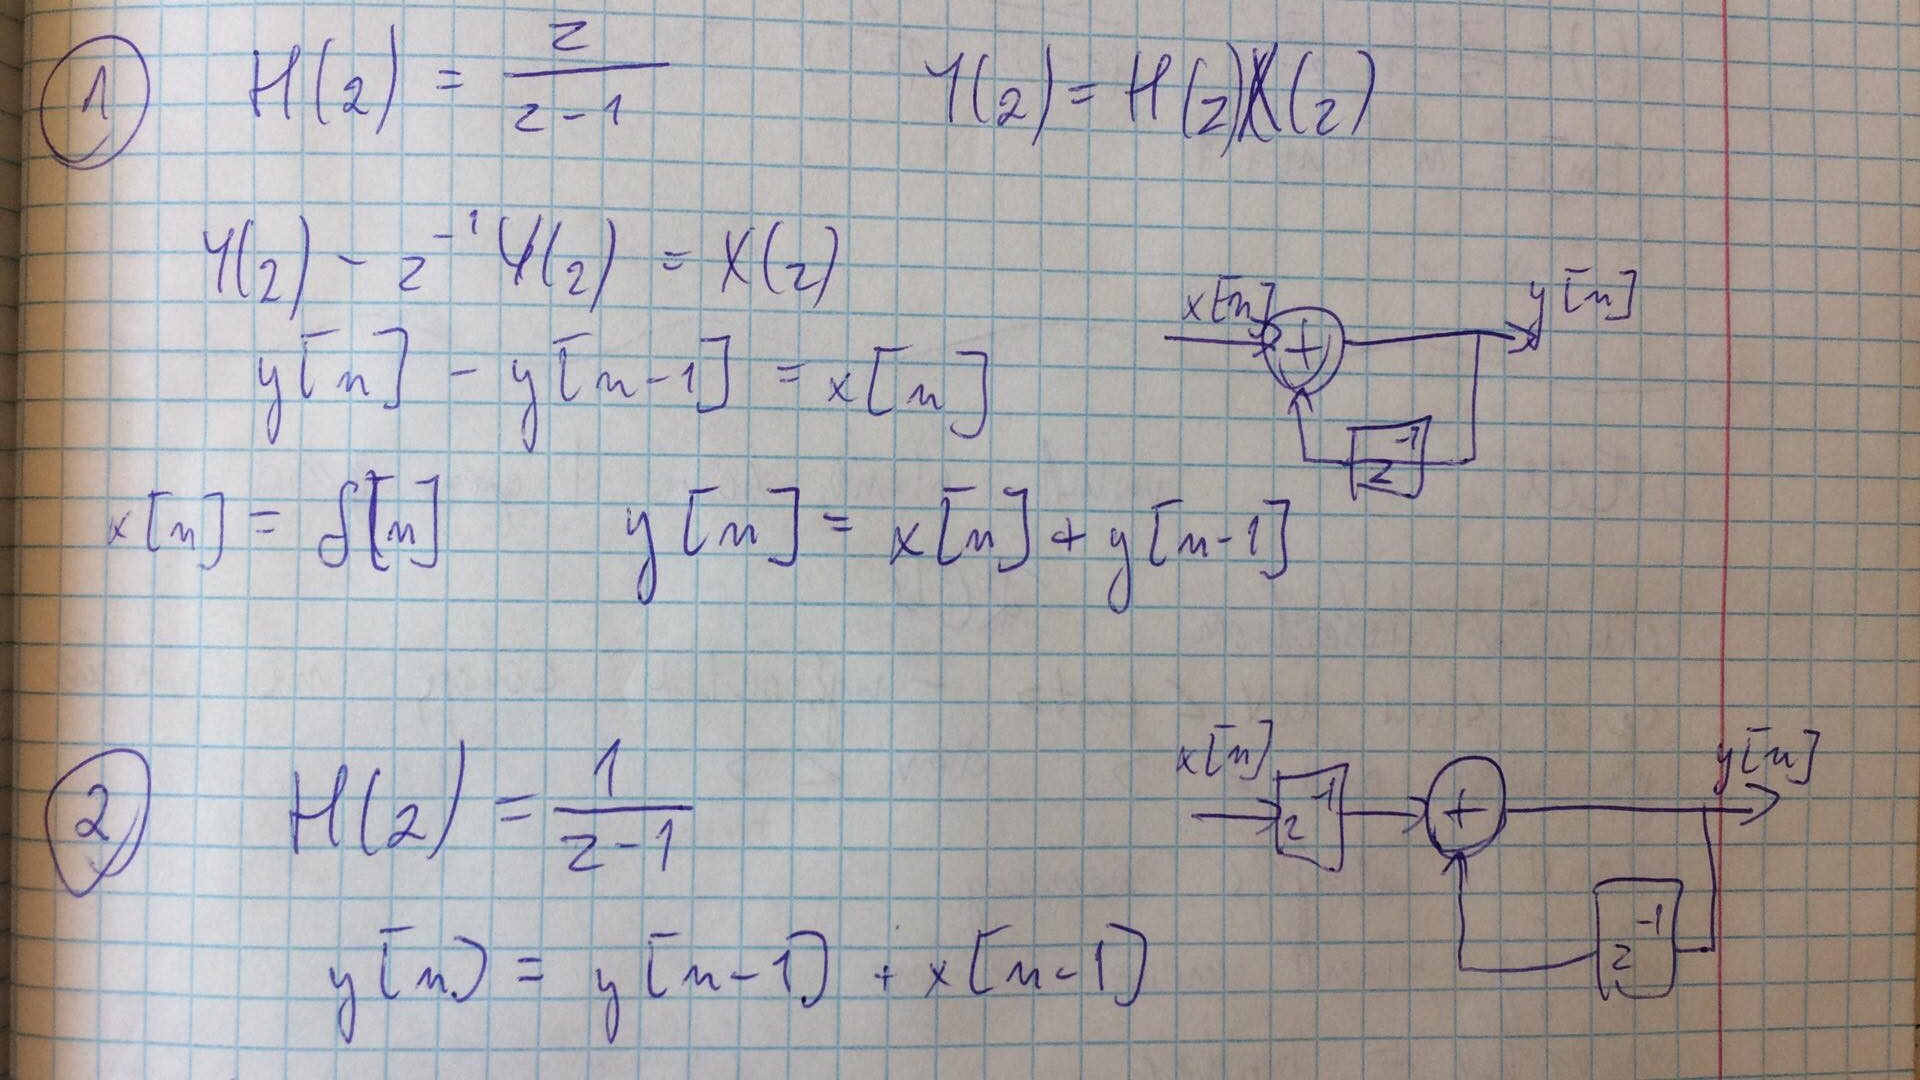 1 H(z) = z / (z-1) Y(z) = H(z)X(z)
Y(z) - z⁻¹ Y(z) = X(z)
x[n] y[n]
y[n] - y[n-1] = x[n]
z⁻¹
x[n] = δ[n] y[n] = x[n] + y[n-1]
2 H(z) = 1 / (z-1)
x[n] z⁻¹ + y[n]
z⁻¹
y[n] = y[n-1] + x[n-1]